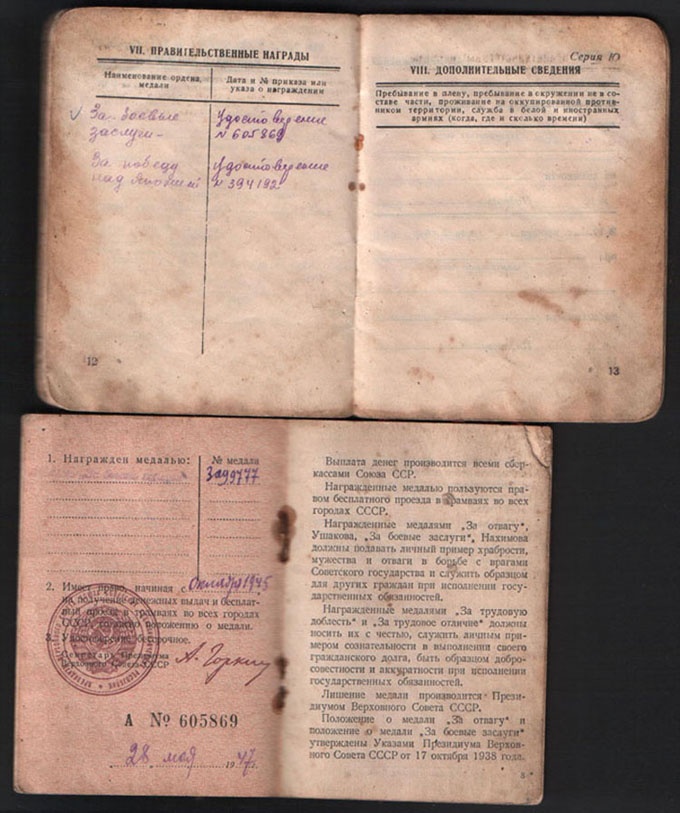 VII. ПРАВИТЕЛЬСТВЕННЫЕ НАГРАДЫ
Наименование ордена, медали
Дата и № приказа или указа о награждении
За боевые
заслуги-
Удостоверение
№ 605869
За победу
над Японией
Удостоверение
№ 394192
12
Серия Ю
VIII. ДОПОЛНИТЕЛЬНЫЕ СВЕДЕНИЯ
Пребывание в плену, пребывание в окружении не в со-
ставе части, проживание на оккупированной против-
ником территории, служба в белой и иностранных
армиях (когда, где и сколько времени)
13
1. Награжден медалью:
№ медали
3099777
2. Имеет право, начиная с октября 1945
на получение денежных выдач и бесплат-
ный проезд в трамваях во всех городах
СССР, согласно положению о медали.
3. Удостоверение бессрочное.
Секретарь Президиума
Верховного Совета СССР
А. Горкин
А № 605869
28 мая 1947 г.
Выплата денег производится всеми сбер-
кассами Союза ССР.
Награжденные медалью пользуются пра-
вом бесплатного проезда в трамваях во всех
городах СССР.
Награжденные медалями „За отвагу“,
Ушакова, „За боевые заслуги“, Нахимова
должны подавать личный пример храбрости,
мужества и отваги в борьбе с врагами
Советского государства и служить образцом
для других граждан при исполнении госу-
дарственных обязанностей.
Награжденные медалями „За трудовую
доблесть“ и „За трудовое отличие“ должны
носить их с честью, служить личным при-
мером сознательности в выполнении своего
гражданского долга, быть образцом добро-
совестности и аккуратности при исполнении
государственных обязанностей.
Лишение медали производится Прези-
диумом Верховного Совета СССР.
Положение о медали „За отвагу“ и
положение о медали „За боевые заслуги“
утверждены Указами Президиума Верхов-
ного Совета СССР от 17 октября 1938 года.